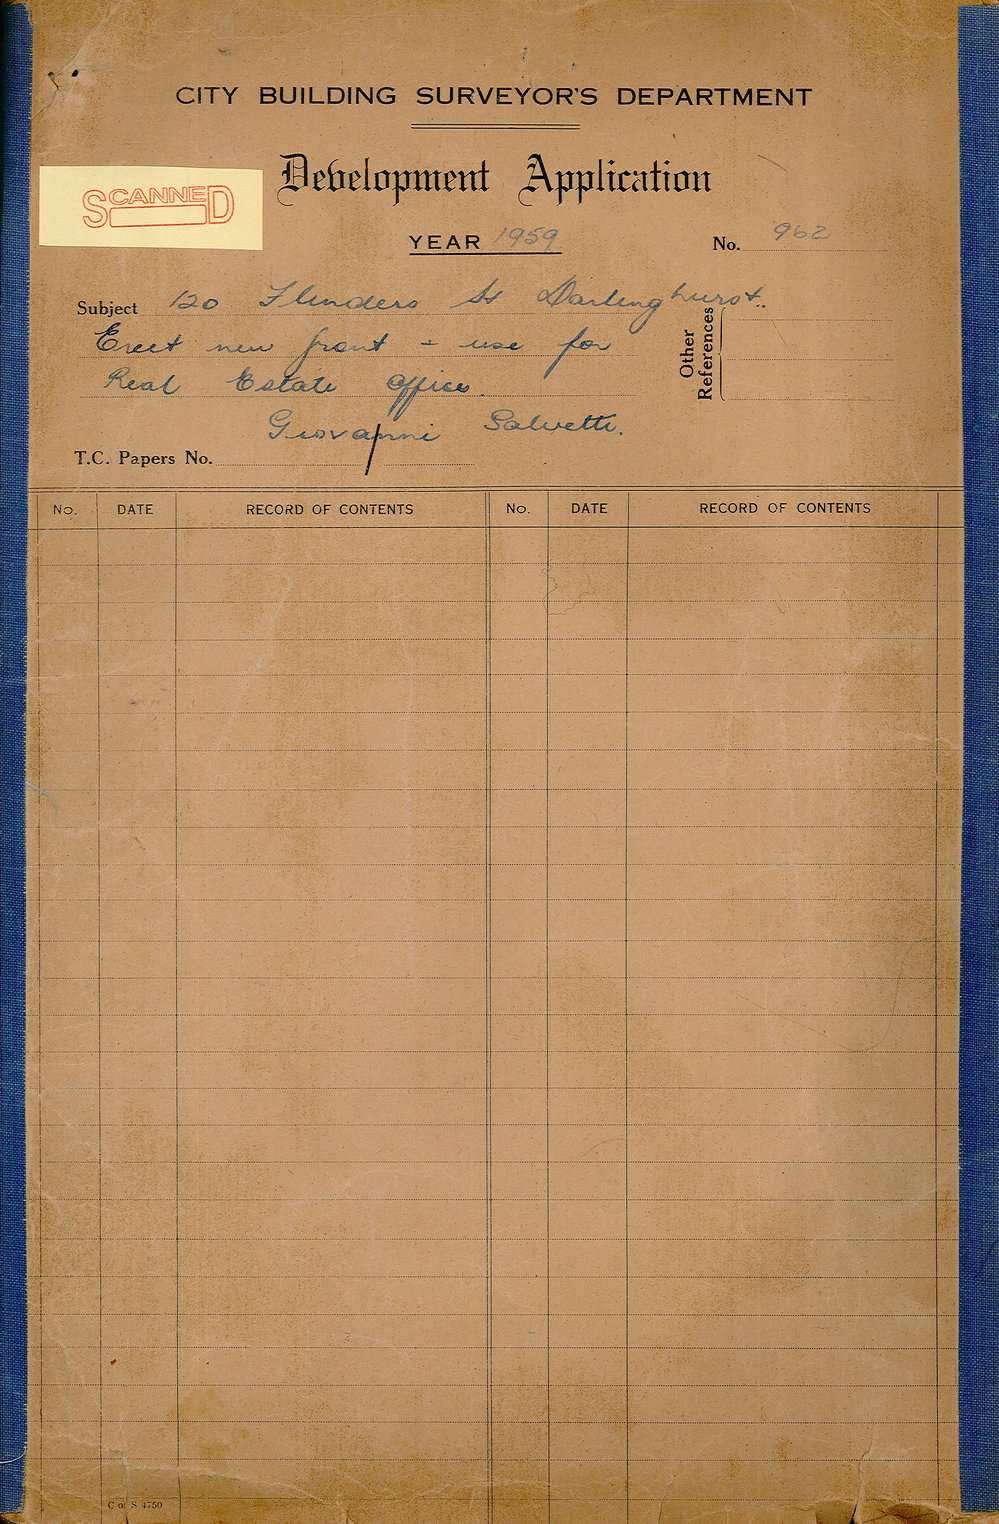 CITY BUILDING SURVEYOR'S DEPARTMENT
Development Application
SCANNED
YEAR 1959
No. 962
Subject 120 Flinders St Darlinghurst.
Erect new front + use for
Real Estate Office.
Giovanni Salvetti.
Other References
T.C. Papers No.
No. DATE RECORD OF CONTENTS No. DATE RECORD OF CONTENTS
2
C of S 4750